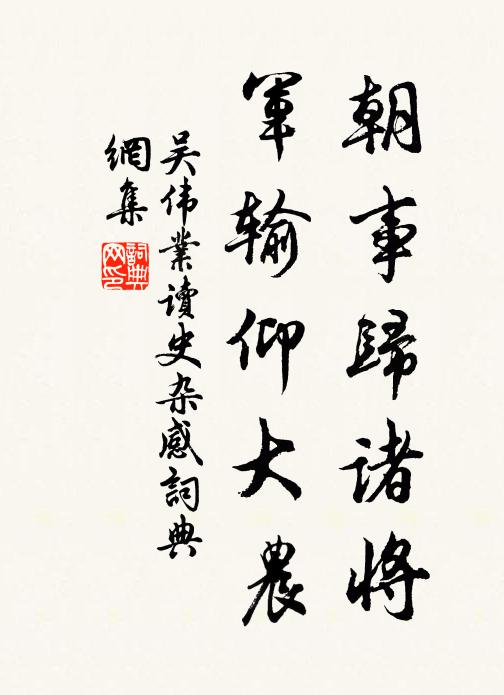 朝事歸诸將
軍输仰大農
吴伟業讀史杂感詞典
網集
詞典
网印